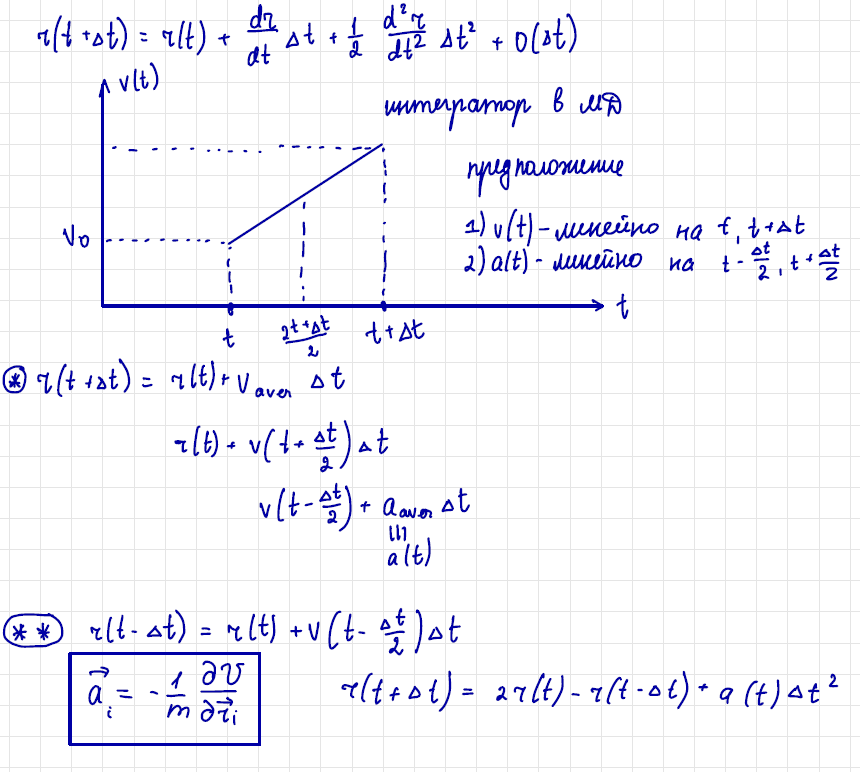 r(t+Δt) = r(t) + dr/dt Δt + 1/2 d²r/dt² Δt² + O(Δt)
v(t)
интегратор в МД
предположение
v₀
1) v(t) - линейно на t, t+Δt
2) a(t) - линейно на t - Δt/2, t + Δt/2
t
t
(2t+Δt)/2
t+Δt
(*) r(t+Δt) = r(t) + v aver Δt
r(t) + v(t + Δt/2) Δt
v(t - Δt/2) + a aver Δt
a(t)
(**) r(t - Δt) = r(t) + v(t - Δt/2) Δt
a⃗ᵢ = - 1/m ∂U/∂r⃗ᵢ
r(t+Δt) = 2r(t) - r(t-Δt) + a(t) Δt²